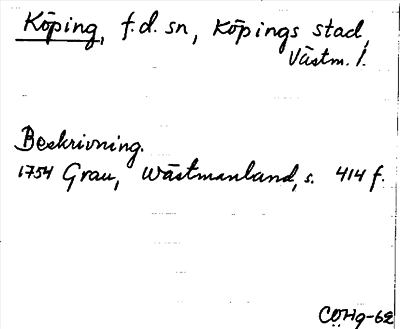 Köping, f.d. sn, Köpings stad,
Västm. l.
Beskrivning.
1754 Grau, Wästmanland, s. 414 f.
CÖHg-62